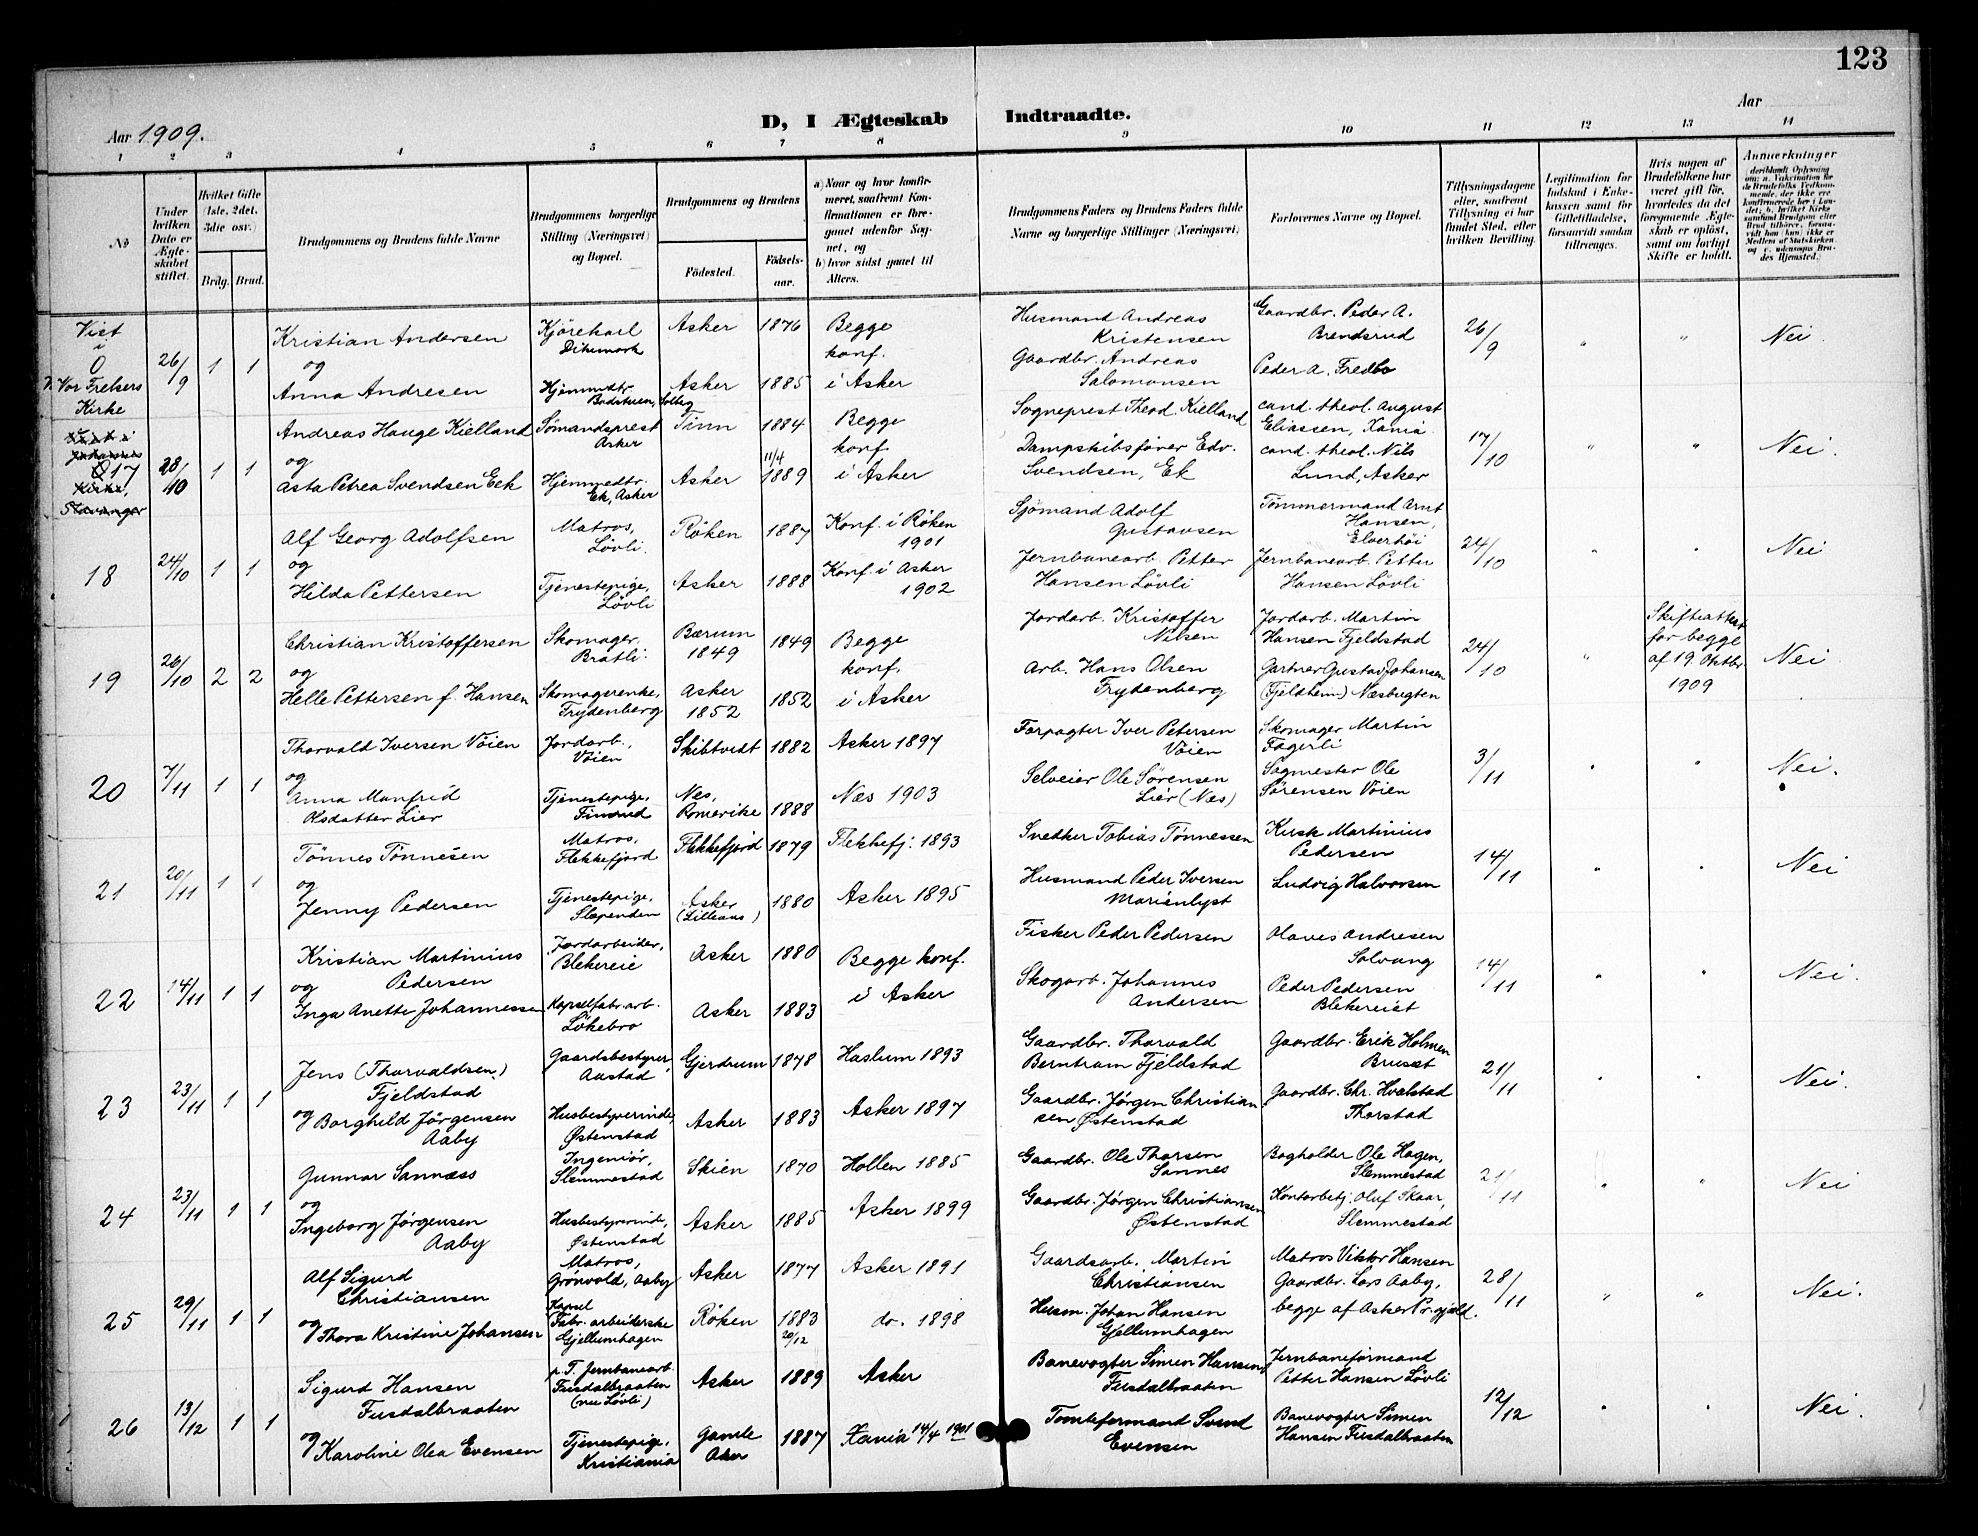 123
Aar 1909.
D, I Ægteskab Indtraadte.
Aar
1 2 3 4 5 6 7 8 9 10 11 12 13 14
No
Under hvilken Dato er Ægteskabet stiftet.
Hvilket Gifte (1ste, 2det, 3die osv.)
Brdg. Brud.
Brudgommens og Brudens fulde Navne
Brudgommens borgerlige Stilling (Næringsvei) og Bopæl.
Brudgommens og Brudens
Fødested.
Fødselsaar.
a) Naar og hvor konfirmeret, saafremt Konfirmationen er foregaaet udenfor Sognet, og
b) hvor sidst gaaet til Alters.
Brudgommens Faders og Brudens Faders fulde Navne og borgerlige Stillinger (Næringsvei)
Forlovernes Navne og Bopæl.
Tillysningsdagene eller, saafremt Tillysning ei har fundet Sted, efter hvilken Bevilling.
Legitimation for Indskud i Enkekassen samt for Giftetilladelse, forsaavidt saadan tiltrænges.
Hvis nogen af Brudefolkene har været gift før, hvorledes da det foregaaende Ægteskab er opløst, samt om lovligt Skifte er holdt.
Anmerkninger
deriblandt Oplysning om: a. Vakcination for de Brudefolks Vedkommende, der ikke ere konfirmerede her i Landet; b. hvilket Kirkesamfund Brudgom eller Brud tilhører, forsaavidt han (hun) ikke er Medlem af Statskirken og c. udensogns Brudes Hjemsted.
Viet
i
O
V. Vor Frelsers
Kirke
26/9 1 1
Kristian Andersen
og
Anna Andresen
Kjørekarl
Dikemark
Hjemmedtr.
Badstuen, Solberg
Asker 1876
Asker 1885
Begge
konf.
i Asker
Husmand Andreas
Kristensen
Gaardbr. Andreas
Salomonsen
Gaardbr. Peder A.
Brendsrud
Peder A. Fredbo
26/9 " " Nei.
Viet i
Johannes
017
Kirke,
Stavanger
28/10 1 1
Andreas Hauge Kielland
og
Asta Petrea Svendsen Eek
Sømandsprest
Asker
Hjemmedtr.
Ek, Asker
Tinn 1884
Asker 11/4 1889
Begge
konf.
i Asker
Sogneprest Theod. Kielland
Dampskibsfører Edv.
Svendsen, Ek
cand. theol. August
Eliassen, Xania
cand. theol. Nils
Lund, Asker
17/10 " " Nei.
18 24/10 1 1
Alf Georg Adolfsen
og
Hilda Pettersen
Matros,
Løvli.
Tjenestepige,
Løvli
Røken 1887
Asker 1888
Konf. i Røken
1901
Konf. i Asker
1902
Sjømand Adolf
Gustavsen
Jernbanearb. Petter
Hansen Løvli
Tømmermand Arnt
Hansen,
Elverhøi
Jernbanearb. Petter
Hansen Løvli
24/10 " " Nei
19 26/10 2 2
Christian Kristoffersen
og
Helle Pettersen f. Hansen
Skomager,
Bratli.
Skomagerenke,
Frydenberg
Bærum
1849 1849
Asker
1852 1852
Begge
konf.
i Asker
Jordarb. Kristoffer
Nilsen
Arb. Hans Olsen
Frydenberg
Jordarb. Martin
Hansen Fjeldstad
Gartner Gustav Johansen
(Fjeldheim) Næsbugten
24/10 "
Skifteattest
for begge
af 19. Oktbr.
1909
Nei
20 7/11 1 1
Thorvald Iversen Vøien
og
Anna Manfrid
Olsdatter Lier
Jordarb.,
Vøien
Tjenestepige,
Finsrud
Skibtvedt 1882
Nes,
Romerike 1888
Asker 1897
Næs 1903
Forpagter Iver Petersen
Vøien
Selveier Ole Sørensen
Lier (Næs)
Skomager Martin
Fagerli
Sagmester Ole
Sørensen Vøien
3/11 " " Nei.
21 20/11 1 1
Tönnes Tönnesen
og
Jenny Pedersen
Matros,
Flekkefjord
Tjenestepige,
Slependen
Flekkefjord 1879
Asker
(Lilleaas) 1880
Flekkefj: 1893
Asker 1895
Snedker Tobias Tønnessen
Husmand Peder Iversen
Marienlyst
Kusk Martinius
Pedersen
Ludvig Halvorsen
14/11 " " Nei
22 14/11 1 1
Kristian Martinius
og Pedersen
Inga Anette Johannessen
Jordarbeider,
Blekereie
Kapselfabr.arb.
Løkebro
Asker 1880
Asker 1883
Begge konf.
i Asker
Fisker Peder Pedersen
Skogarb. Johannes
Andersen
Olaves Andresen
Solvang
Peder Pedersen
Blekereiet
14/11 " " Nei.
23 23/11 1 1
Jens (Thorvaldsen)
Fjeldstad
og Borghild Jørgensen
Aaby
Gaardsbestyrer,
Aastad
Husbestyrerinde,
Østenstad
Gjerdrum 1878
Asker 1883
Haslum 1893
Asker 1897
Gaardbr. Thorvald
Berntram Fjeldstad
Gaardbr. Jørgen Christian
sen Østenstad
Gaardbr. Erik Holmen
Bruset
Gaardbr. Chr. Hvalstad
Thorstad
21/11 " " Nei.
24 23/11 1 1
Gunnar Sannæss
og
Ingeborg Jørgensen
Aaby
Ingeniør,
Slemmestad
Husbestyrerinde,
Østenstad
Skien 1870
Asker 1885
Hollen 1885
Asker 1899
Gaardbr. Ole Thorsen
Sannes
Gaardbr. Jørgen Christiansen
Østenstad
Bogholder Ole Hagen,
Slemmestad
Kontorbetj. Oluf Skaar,
Slemmestad
21/11 " " Nei
25 29/11 1 1
Alf Sigurd
Christiansen
og
Thora Kristine Johansen
Matros,
Grönvold, Aaby
Kapsel
Fabr. arbeiderske
Gjellumhagen
Asker 1877
Røken 1883
20/12
Asker 1891
do. 1898
Gaardsarb. Martin
Christiansen
Husm. Johan Hansen
Gjellumhagen
Matros Viktor Hansen
Gaardbr. Lars Aaby,
begge af Asker Pr.gjæld.
28/11 " " Nei.
26 13/12 1 1
Sigurd Hansen
Fusdalbraaten
og
Karoline Olea Evensen
p. T. Jernbanearb.
Fusdalbraaten
(nu Løvli)
Tjenestepige,
Kristiania
Asker 1889
Gamle
Aker 1887
Asker
Xania 14/4 1901
Banevogter Simen Hansen
Fusdalbraaten
Tomteformand Svend
Evensen
Jernbaneformand
Petter Hansen Løvli
Banevogter Simen
Hansen Fusdalbraaten
12/12 " " Nei.